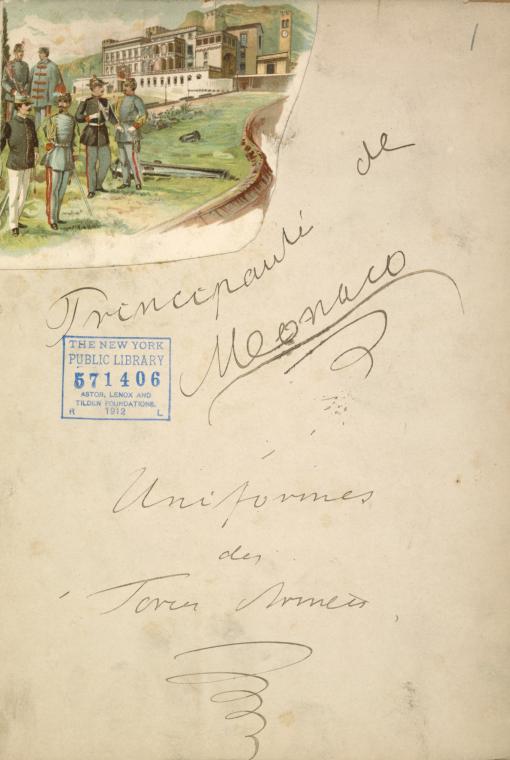 1
Principauté de
Monaco
THE NEW YORK
PUBLIC LIBRARY
571406
ASTOR, LENOX AND
TILDEN FOUNDATIONS.
R 1912 L
Uniformes
des
Forces Armées